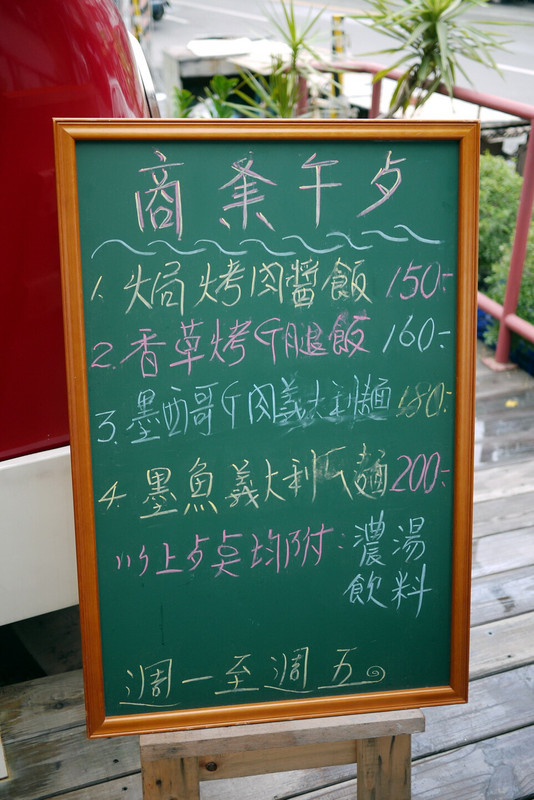 商業午歺
1. 焗烤肉醬飯 150.-
2. 香草烤G腿飯 160.-
3. 墨西哥G肉義大利麵 180.-
4. 墨魚義大利麵 200.-
以上歺奌均附：濃湯
飲料
週一至週五